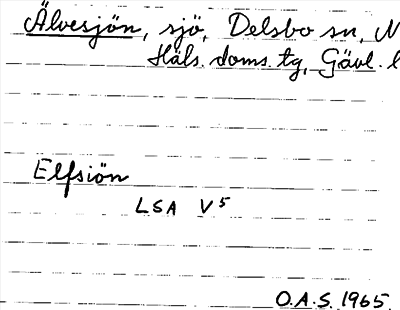 Älvesjön, sjö, Delsbo sn, N
Häls. doms. tg, Gävl. l
Elfsiön
LSA V⁵
O.A.S. 1965.